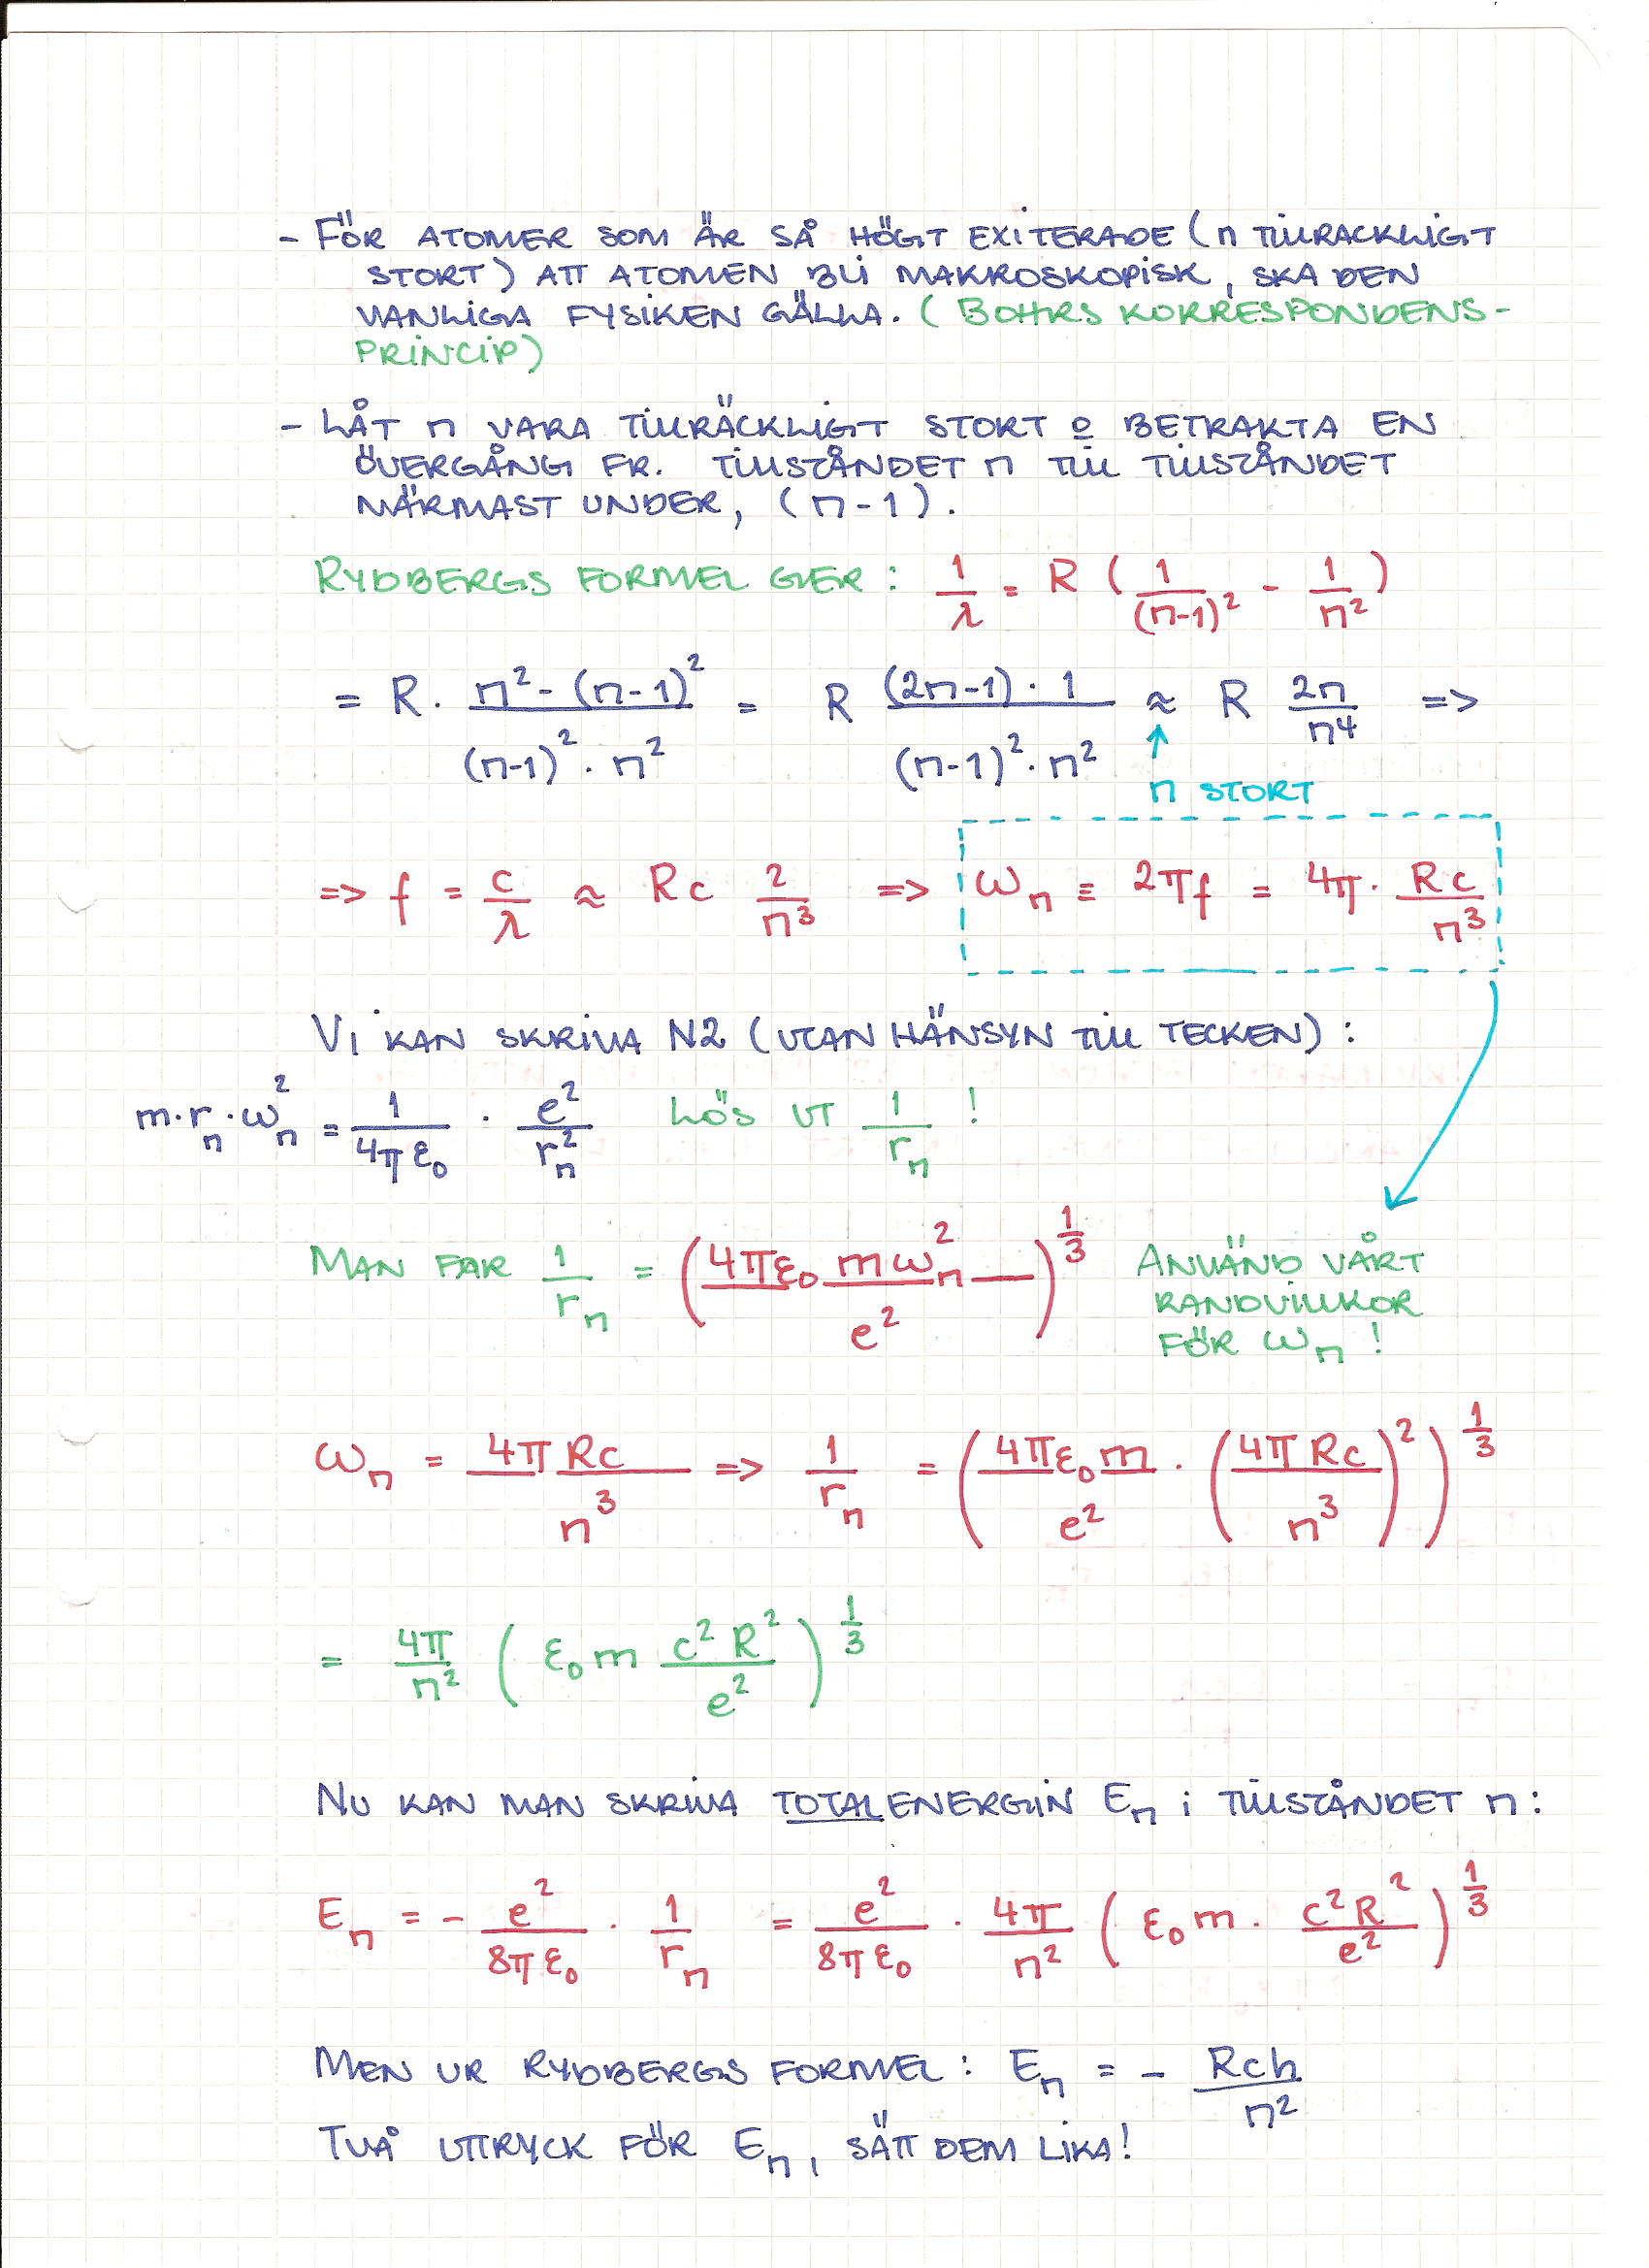 - FÖR ATOMER SOM ÄR SÅ HÖGT EXITERADE (n TILLRACKLIGT
STORT) ATT ATOMEN BLI MAKROSKOPISK, SKA DEN
VANLIGA FYSIKEN GÄLLA. (BOHRS KORRESPONDENS-
PRINCIP)
- LÅT n VARA TILLRÄCKLIGT STORT o BETRAKTA EN
ÖVERGÅNG FR. TILLSTÅNDET n TILL TILLSTÅNDET
NÄRMAST UNDER, (n-1).
RYDBERGS FORMEL GER: 1/λ = R (1/(n-1)² - 1/n²)
= R · (n² - (n-1)²)/((n-1)² · n²) = R ((2n-1) · 1)/((n-1)² · n²) ≈ R 2n/n⁴ =>
↑
n STORT
=> f = c/λ ≈ Rc 2/n³ => ωₙ ≡ 2πf = 4π · Rc/n³
VI KAN SKRIVA N2 (UTAN HÄNSYN TILL TECKEN):
m·rₙ·ωₙ² = 1/(4πε₀) · e²/rₙ² LÖS UT 1/rₙ !
MAN FAR 1/rₙ = (4πε₀ mωₙ²/e²)^(1/3) ANVÄND VÅRT
RANDVILLKOR
FÖR ωₙ !
ωₙ = 4πRc/n³ => 1/rₙ = (4πε₀m/e² · (4πRc/n³)²)^(1/3)
= 4π/n² (ε₀m c²R²/e²)^(1/3)
NU KAN MAN SKRIVA TOTALENERGIN Eₙ i TILLSTÅNDET n:
Eₙ = - e²/(8πε₀) · 1/rₙ = e²/(8πε₀) · 4π/n² (ε₀m · c²R²/e²)^(1/3)
MEN UR RYDBERGS FORMEL: Eₙ = - Rch/n²
TVÅ UTTRYCK FÖR Eₙ, SÄTT DEM LIKA!